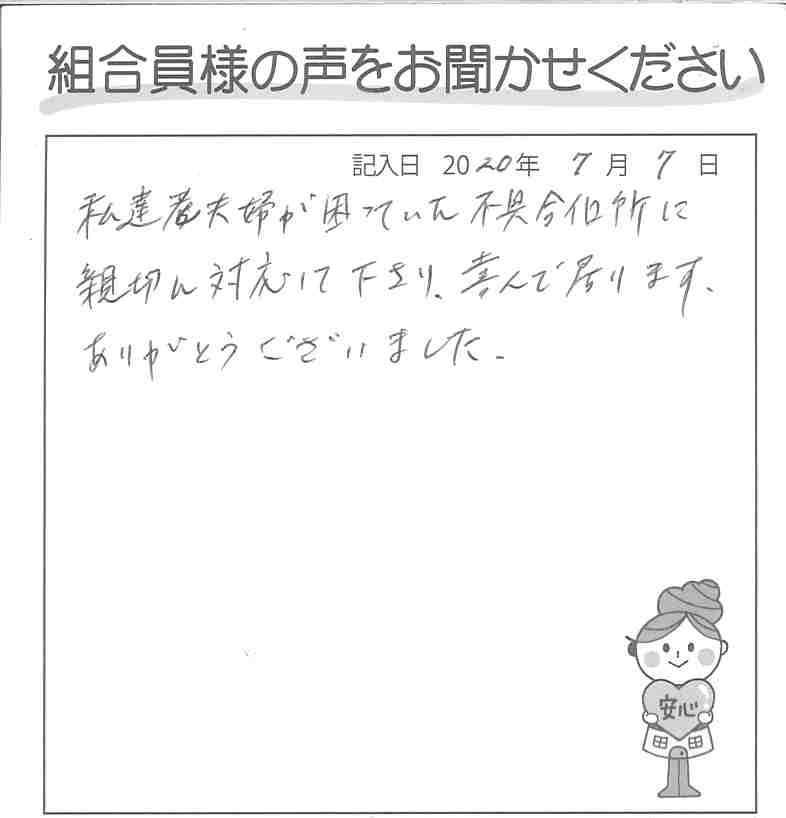 組合員様の声をお聞かせください
記入日 2020年 7月 7日
私達老夫婦が困っていた不具合個所に
親切に対応して下さり、喜んで居ります、
ありがとうございました。
安心